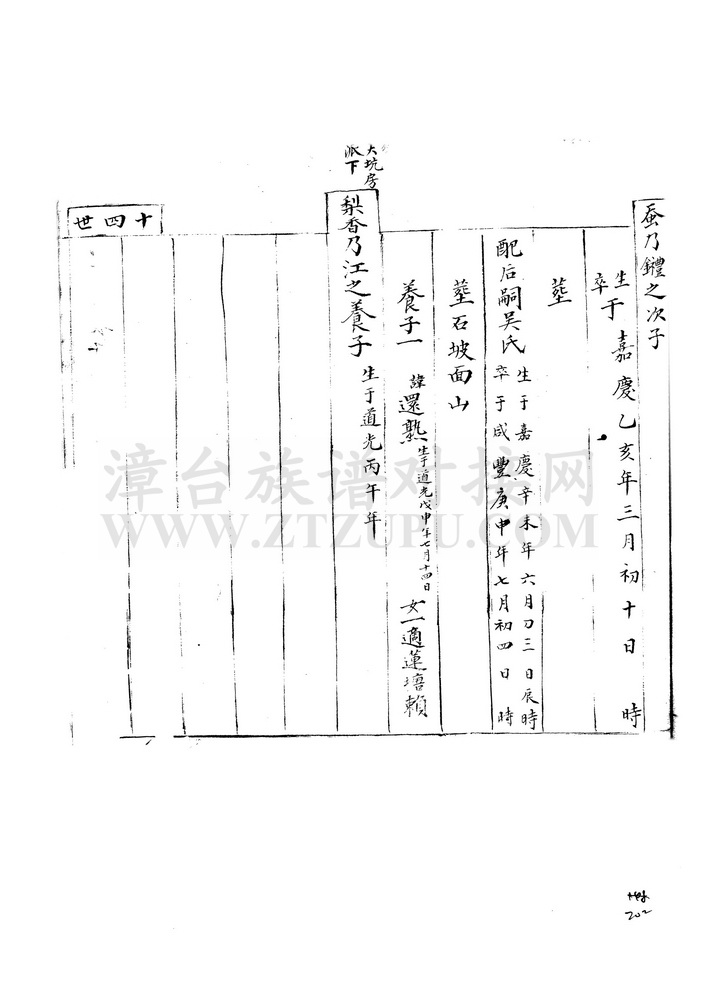 蚕乃鑪之次子
生
卒
于嘉慶乙亥年三月初十日 時
塟
配后嗣吳氏
生于嘉慶辛未年六月刀三日辰時
卒于咸豐庚申年七月初四日 時
塟石坡面山
養子一 諱還熟 生于道光戊申年七月十四日 女一適蓮培賴
大坑房
派下
梨香乃江之養子 生于道光丙午年
十四世
漳台族谱对接网
WWW.ZTZUPU.COM
202